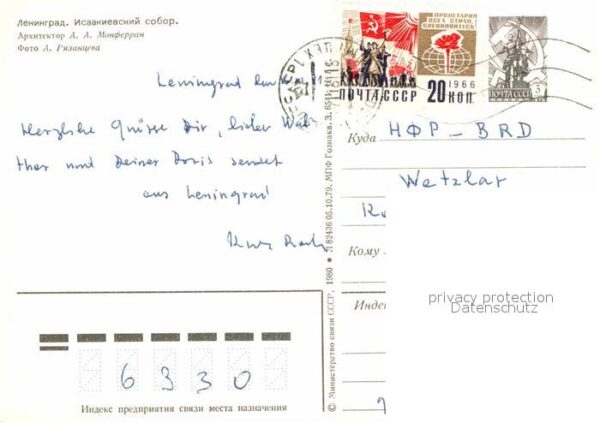 Ленинград. Исаакиевский собор.
Архитектор А. А. Монферран
Фото А. Рязанцева
Leningrad
Herzliche Grüsse Dir, lieber Wal-
ther und Deiner Doris sendet
aus Leningrad
ПРОЛЕТАРИИ
ВСЕХ СТРАН,
СОЕДИНЯЙТЕСЬ!
1966
ПОЧТА СССР 20 КОП
ПОЧТА СССР 3
Куда НФР - BRD
Wetzlar
Кому
Индек
privacy protection
Datenschutz
6 3 3 0
Индекс предприятия связи места назначения
© Министерство связи СССР, 1980 • Л 82436 05.10.79. МПФ Гознака. З.